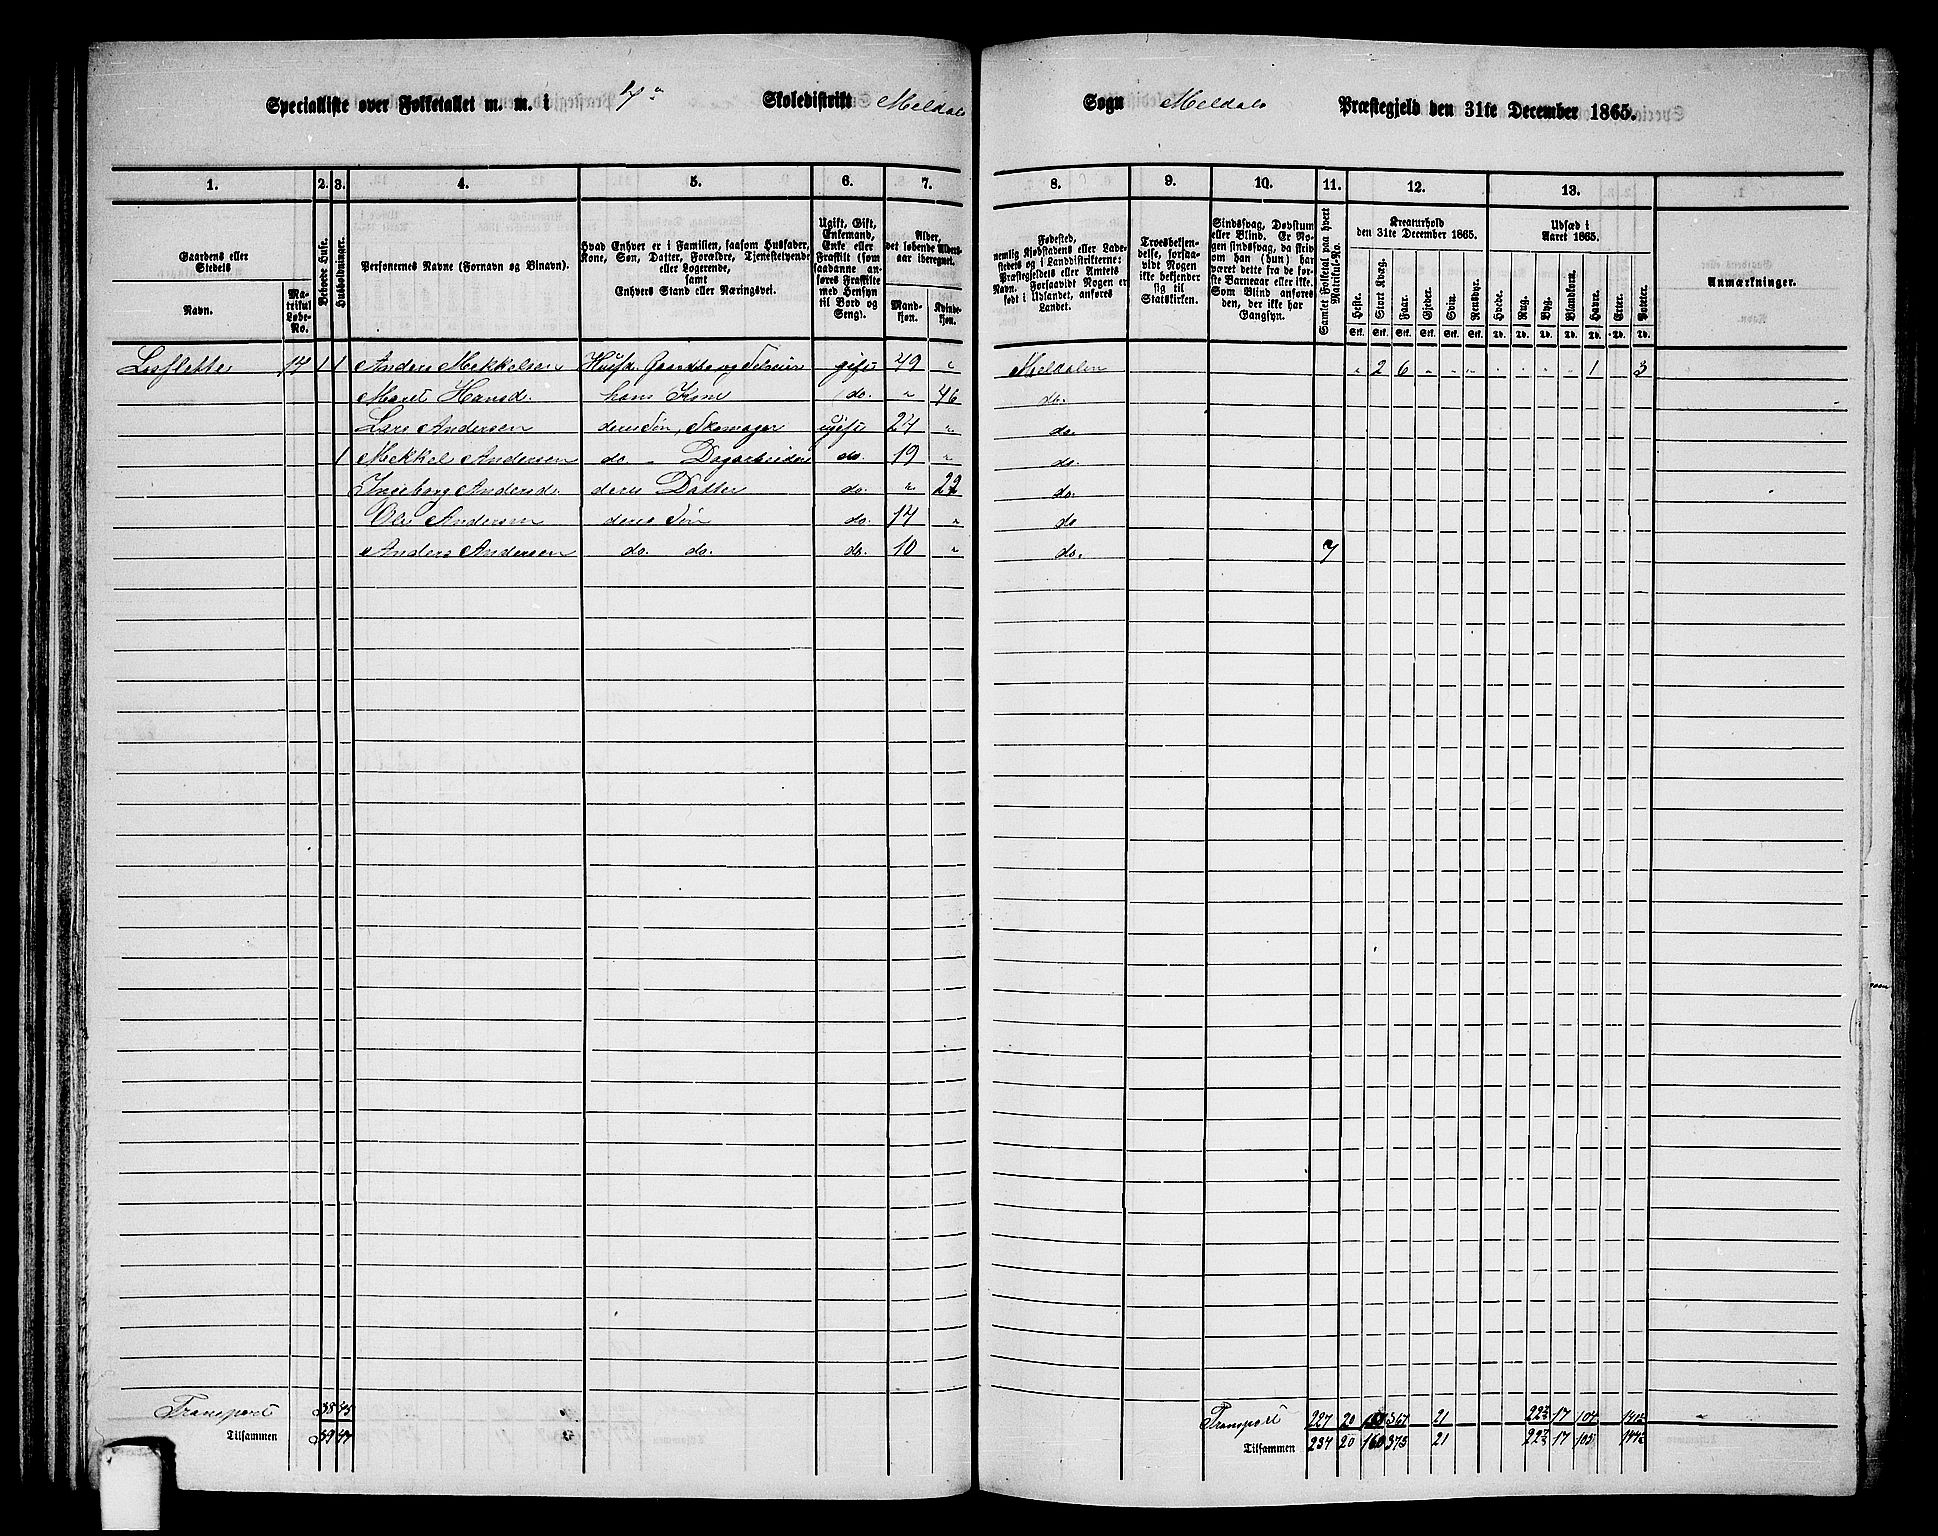 Specialliste over Folketallet m. m. i 4de Skoledistrikt Meldals Sogn Meldals Præstegjeld den 31te December 1865.
1. 2. 3. 4. 5. 6. 7. 8. 9. 10. 11. 12. 13.
Gaardens eller Stedets
Navn.
Matrikul Løbe-No.
Beboede Huse.
Husholdninger.
Personernes Navne (Fornavn og Binavn).
Hvad Enhver er i Familien, saasom Husfader, Kone, Søn, Datter, Forældre, Tjenestetyende eller Logerende, samt Enhvers Stand eller Næringsvei.
Ugift, Gift, Enkemand, Enke eller Fraskilt (som saadanne anføres Fraskilte med Hensyn til Bord og Seng).
Alder, det løbende Aldersaar iberegnet.
Mandkjøn.
Kvindekjøn.
Fødested, nemlig Kjøbstadens eller Ladestedets og i Landdistrikterne: Præstegjeldets eller Amtets Navn. Forsaavidt Nogen er født i Udlandet, anføres Landet.
Troesbekjendelse, forsaavidt Nogen ikke bekjender sig til Statskirken.
Sindssvag, Døvstum eller Blind. Er Nogen sindssvag, da skrives om han (hun) har været dette fra de første Barneaar eller ikke. Som Blind anføres den, der ikke har Gangsyn.
Samlet Folketal paa hvert Matrikul-No.
Kreaturhold den 31te December 1865.
Heste. Stort Kvæg. Faar. Gjeder. Svin. Rensdyr.
Stk. Stk. Stk. Stk. Stk. Stk.
Udsæd i Aaret 1865.
Hvede. Rug. Byg. Blandkorn. Havre. Erter. Poteter.
Td. Td. Td. Td. Td. Td. Td.
Anmærkninger.
14 1 1 Anders Mekkelsen Husfd. gift 49 " Meldalen " 2 6 " " " " " " " 1 3
Maret Hansd. hans Kone do. " 46 do.
Lars Andersen deres Søn, Skomager ugift 24 " do.
1 Mekkel Andersen do. Dagarbeider do. 19 " do.
Ingeborg Andersd. deres Datter do. " 22 do.
Ole Andersen deres Søn do. 14 " do
Anders Andersen do. do. do. 10 " do. 7
Transport 38 45 Transport 227 20 367 21 17 104
Tilsammen 39 47 Tilsammen 234 20 160 373 21 17 105